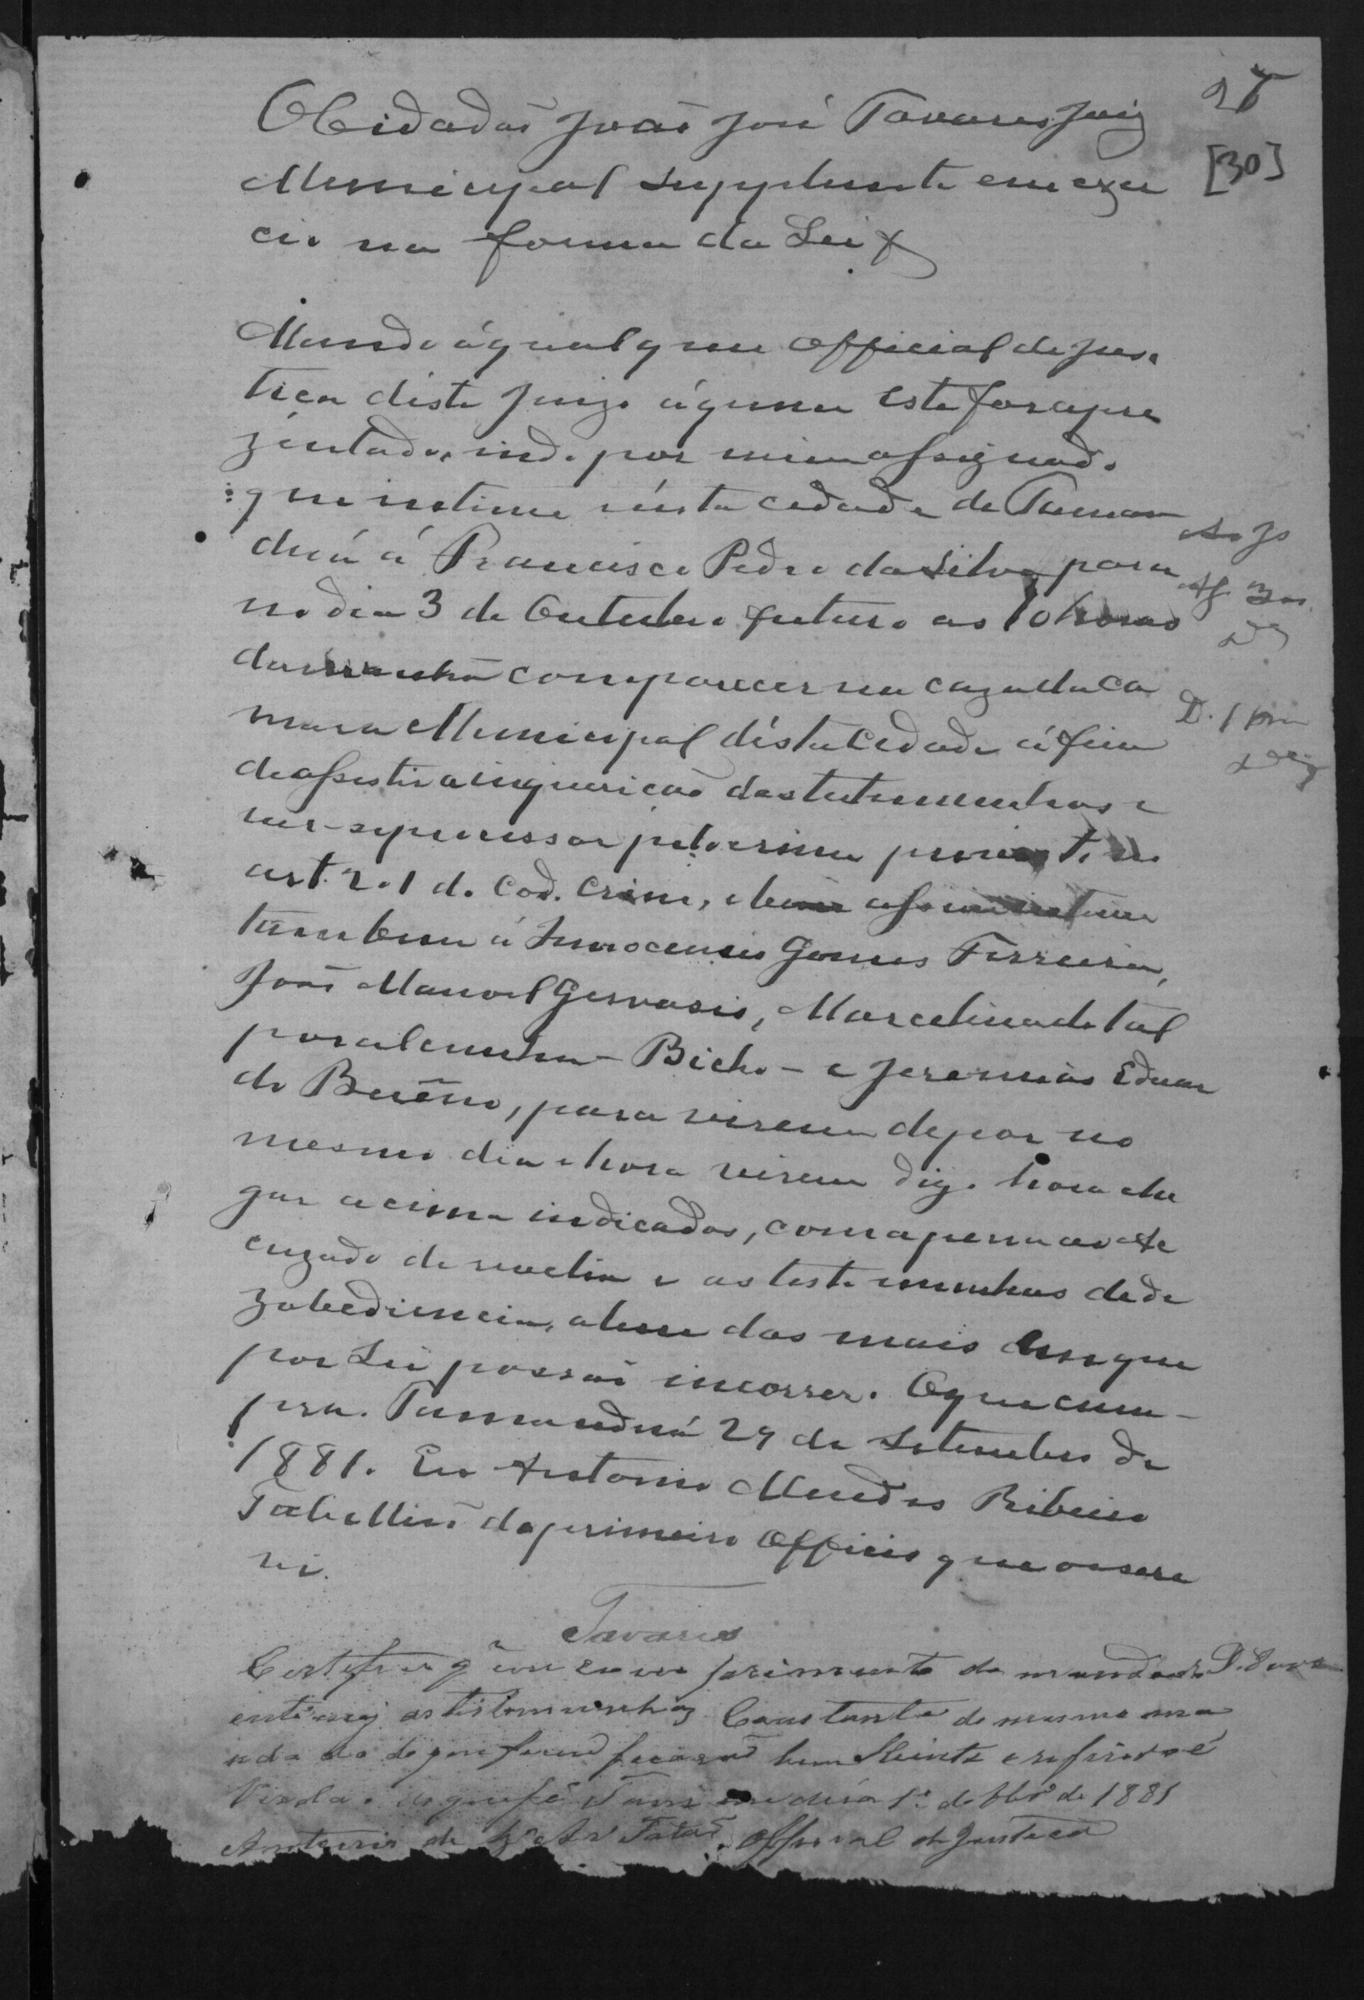 [30]
O Cidadão João José Tavares Juiz
Municipal Supplente em exer
cio na forma da Lei &
Mando á qualquer Official de Jus-
tiça déste Juizo á quem este for apre
zentado, indo por mim assignado
que intime n'ésta cedade de Taman
duá á Francisco Pedro da Silva para
no dia 3 de Outubro futuro as 10 horas
da manhã comparecer na caza da Ca
mara Municipal désta Cedade á fim
de assestir a inquirição das testemunhas e
ver-se processar pelo crime previsto no
art. 201 do Cod. Crim, e bem assim intime
tambem á Innocencio Gomes Ferreira,
João Manoel Gervasio, Marcelino de tal
por alcunha - Bicho - e Jeremias Eduar
do Buêno, para virem depor no
mesmo dia e hora virem digo hora e lu
gar acima indicados, com a pena ao ac
cuzado de revelia e as testemunhas de de
zobediencia, alem das mais em que
por Lei possão incorrer. O que cum-
pra. Tamanduá 29 de Setembro de
1881. Eu Antonio Mendes Ribeiro
Tabellião do primeiro Officio que o escre
vi.
Tavares
Certifico q em comprimento do mandado
intimei as testemunhas Constante do mesmo ma
ndado do que ficarão bem Sciente
dou fé Tamanduá 1º de 8brº de 1881
Official de Justiça